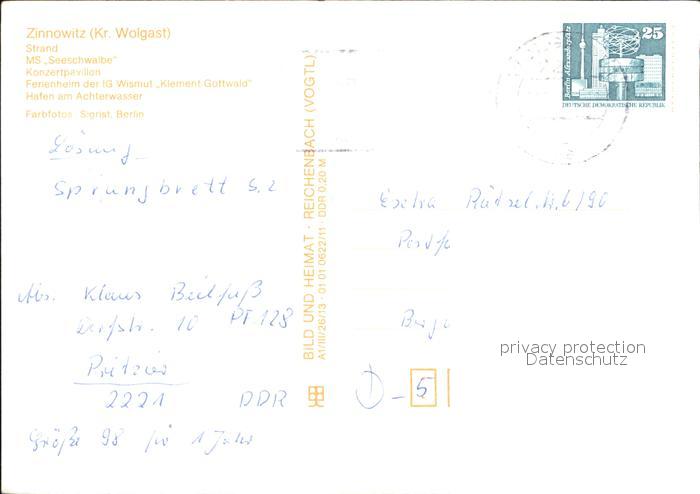 Zinnowitz (Kr. Wolgast)
Strand
MS „Seeschwalbe"
Konzertpavillon
Ferienheim der IG Wismut „Klement Gottwald"
Hafen am Achterwasser
Farbfotos: Sigrist, Berlin
Lösung
Sprungbrett S. 2
Abs. Klaus
Dorfstr. 10 PF 128
Pritzier
2221 DDR
Größe 98 für 1 Jahr
BILD UND HEIMAT · REICHENBACH (VOGTL)
A1/III/26/13 · 01 01 0622/11 · DDR 0,20 M
25
Berlin, Alexanderplatz
DEUTSCHE DEMOKRATISCHE REPUBLIK
Extra Rätsel. Nr. 6/90
Postf
D-5
privacy protection
Datenschutz